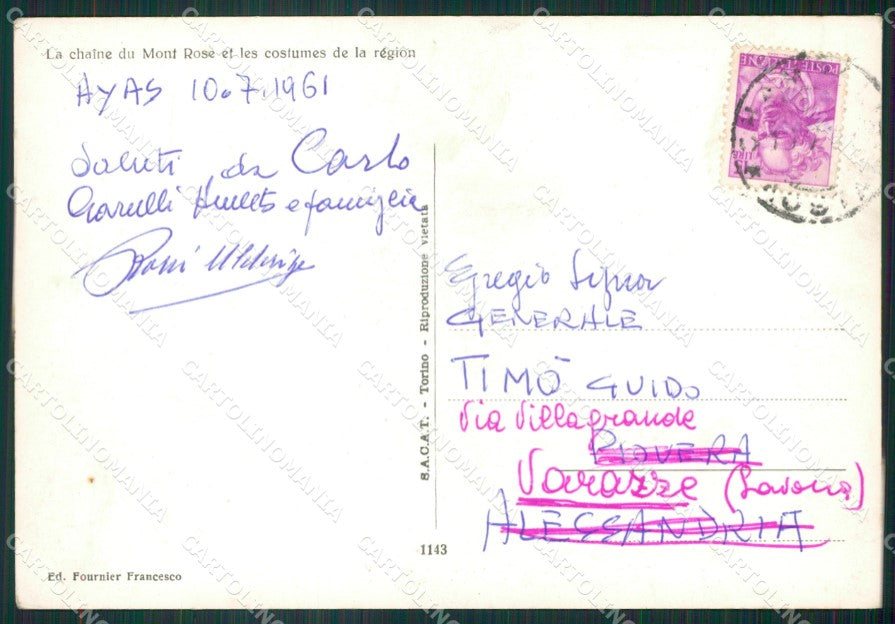 La chaîne du Mont Rose et les costumes de la région
AYAS 10.7.1961
Saluti da Carlo
e famiglia
POSTE ITALIANE
LIRE
S.A.C.A.T. - Torino - Riproduzione vietata
Egregio Signor
GENERALE
TIMÒ GUIDO
Via Villagrande
PIOVERA
Varazze (Savona)
ALESSANDRIA
1143
Ed. Fournier Francesco
CARTOLINOMANIA